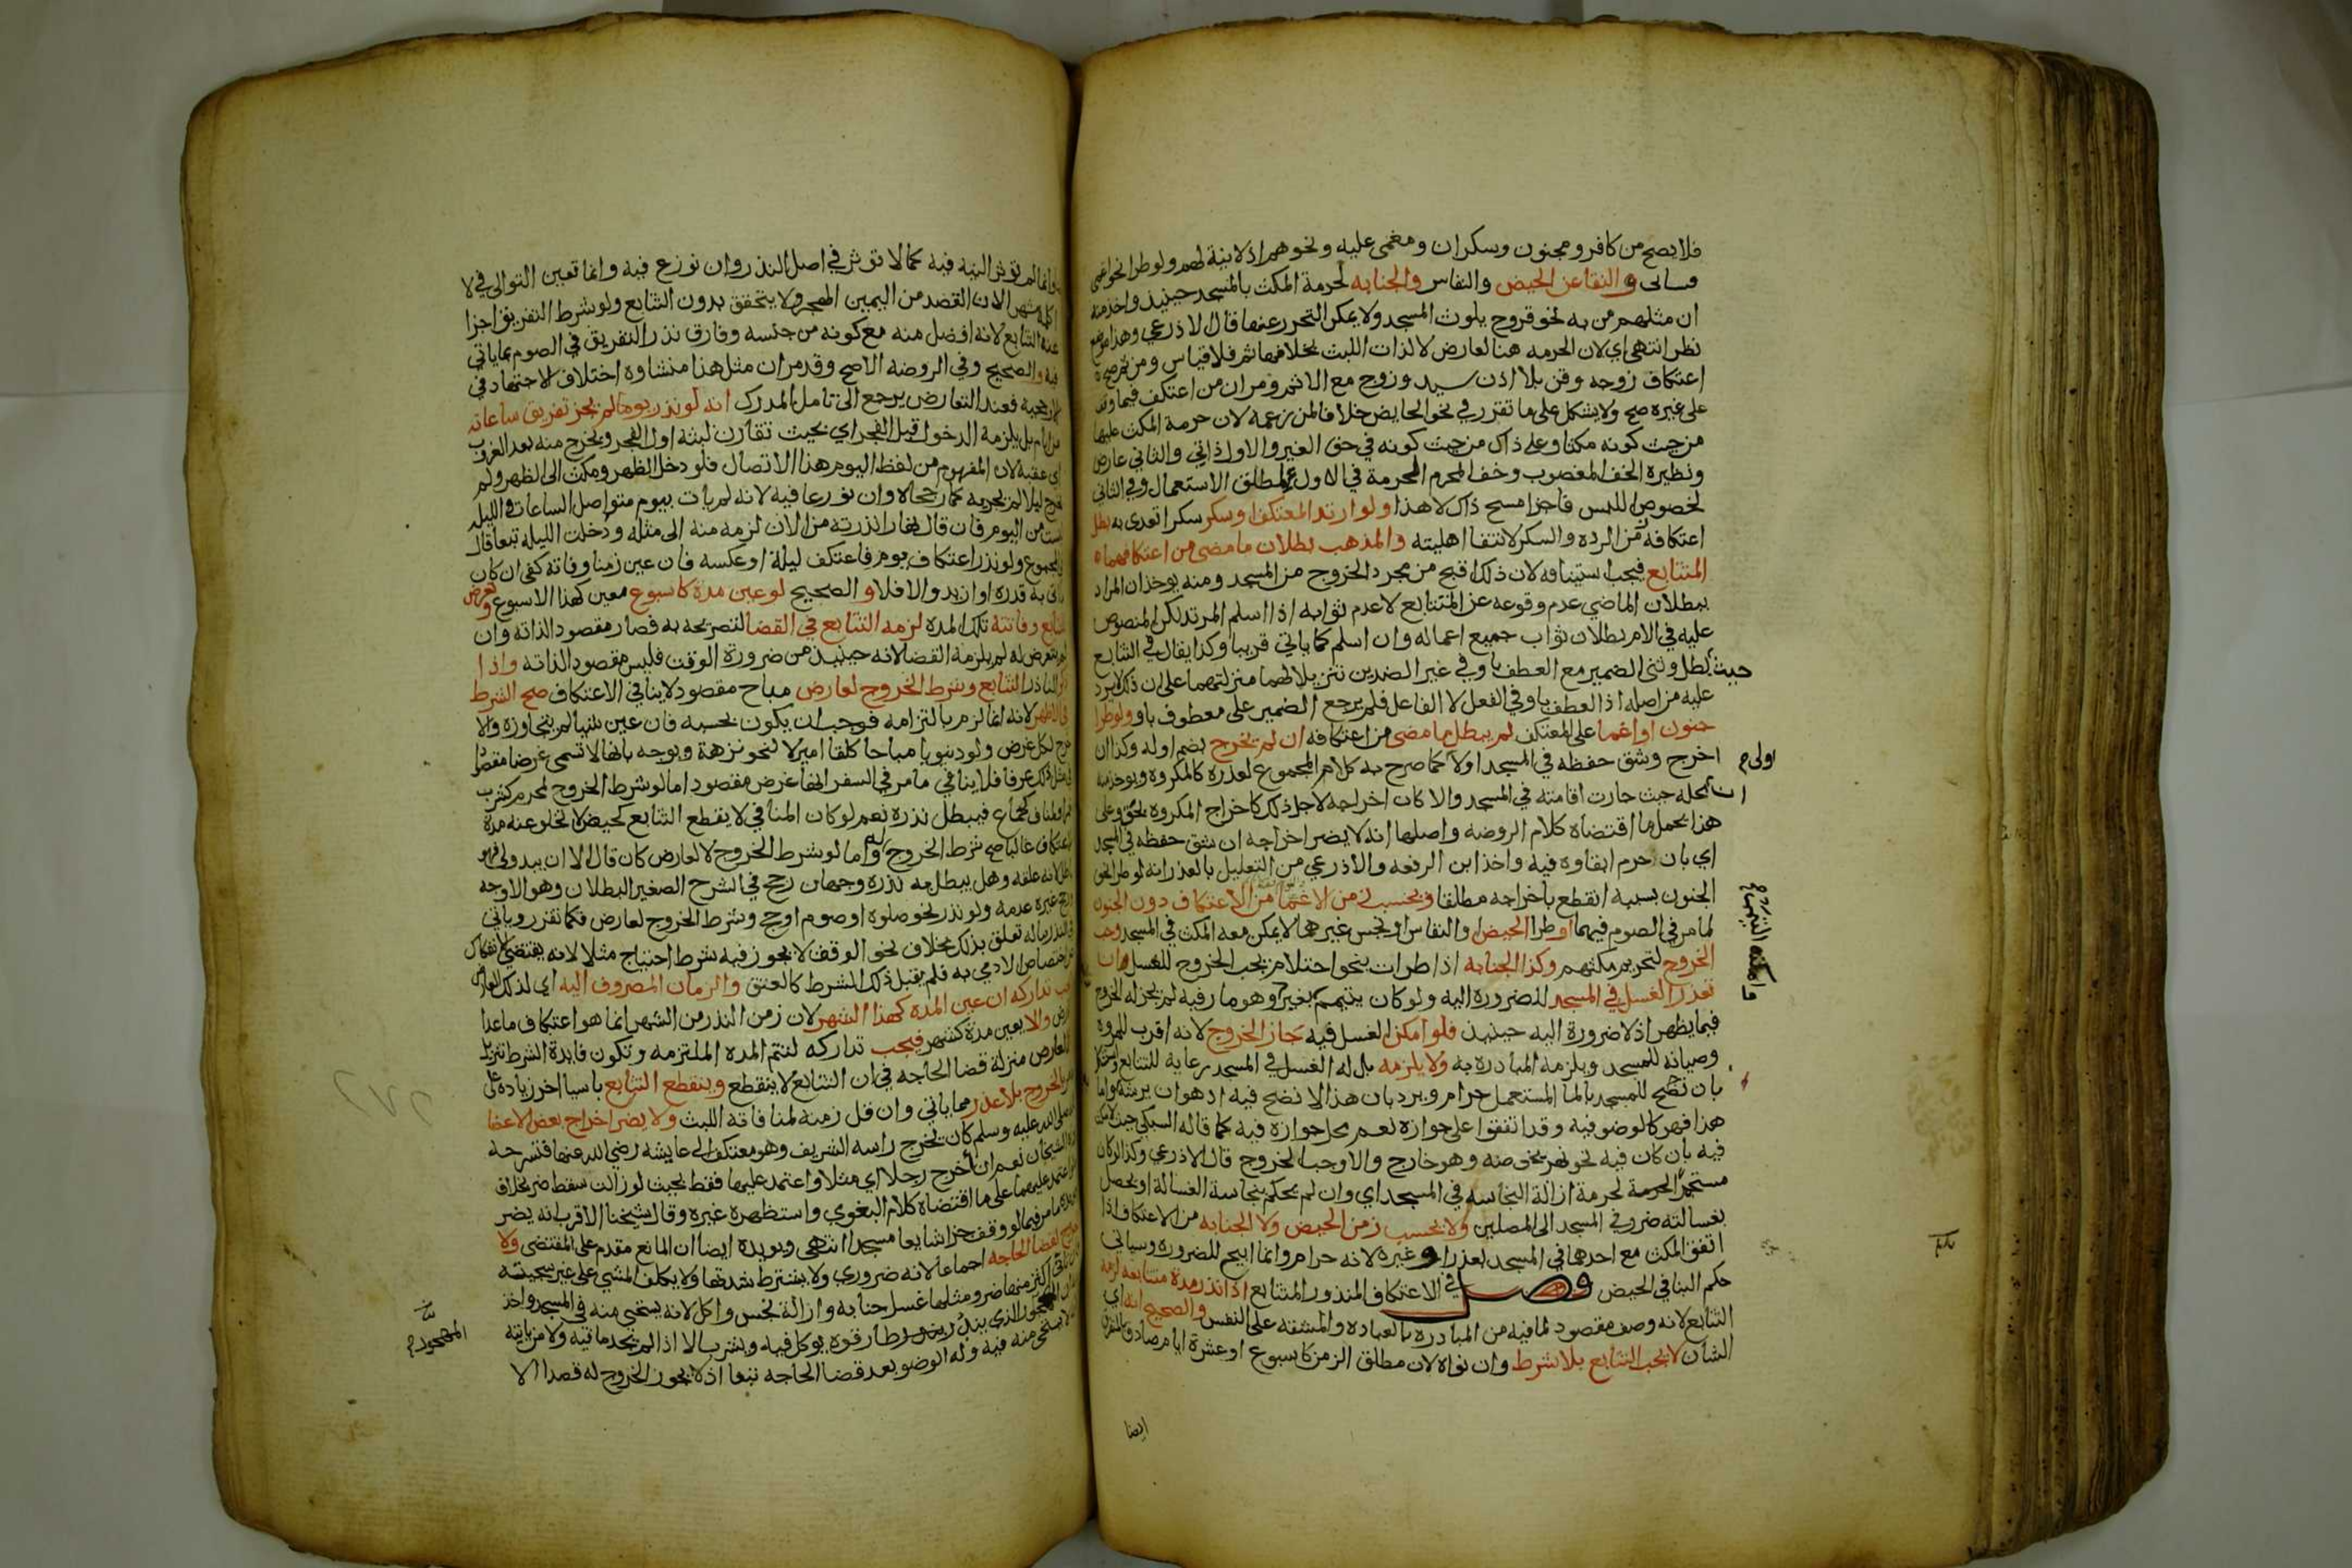 فلا يصح من كافر ومجنون وسكران ومغمى عليه ونحوهم اذ لا نية لهم ولو طرا نحو اغمى
فسياتى والنقا عن الحيض والنفاس والجنابه لحرمة المكث بالمسجد حينيذ واخذ منه
ان مثلهم من به نحو قروح يلوث المسجد ولا يمكن التحرز عنها قال الاذرعي وهذا موضع
نظر انتهى اي لان الحرمه هنا لعارض لا لذات اللبث بخلافها ثم فلا قياس ومن ثم صح
اعتكاف زوجه وقن بلا اذن سيد وزوج مع الاثم ومر ان من اعتكف فيما وقف
على غيره صح ولا يشكل على ما تقرر في نحو الحايض خلافا لمن زعمه لان حرمة المكث عليها
من حيث كونه مكثا وعلى ذاك من حيث كونه في حق الغير والاول ذاتي والثاني عارض
ونظيره الخف المغصوب وخف المحرم المحرمة في الاول لمطلق الاستعمال وفي الثاني
لخصوص اللبس فاجزا مسح ذاك لا هذا ولو ارتد المعتكف او سكر سكرا تعدى به بطل
اعتكافه زمن الرده والسكر لانتفا اهليته والمذهب بطلان ما مضى من اعتكافهما
المتتابع فيجب استينافه لان ذلك اقبح من مجرد الخروج من المسجد ومنه يوخذ ان المراد
ببطلان الماضي عدم وقوعه عن المتتابع لا عدم ثوابه اذا اسلم المرتد لكن المنصوص
عليه في الام بطلان ثواب جميع اعماله وان اسلم كما ياتي قريبا وكذا يقال في التتابع
حيث بطل وثنى الضمير مع العطف باو في غير الضدين تنزيلا لهما منزلتهما على ان ذلك لا يرد
عليه من اصله اذ العطف باو في الفعل لا الفاعل فلم يرجع الضمير على معطوف باو ولو طرا
جنون او اغما على المعتكف لم يبطل ما مضى من اعتكافه ان لم يخرج بضم اوله وكذا ان
اخرج وشق حفظه في المسجد او لا كما صرح به كلام المجموع لعذره كالمكروه ويوخذ منه
ان محله حيث جازت اقامته في المسجد والا كان اخراجه لاجل ذلك كاخراج المكروه بحق وعلى
هذا يحمل ما اقتضاه كلام الروضه واصلها انه لا يضر اخراجه ان شق حفظه في المسجد
اي بان حرم ابقاوه فيه واخذ ابن الرفعه والاذرعي من التعليل بالعذر انه لو طرا نحو
الجنون بسببه انقطع باخراجه مطلقا ويحسب زمن الاغما من الاعتكاف دون الجنون
لما مر في الصوم فيهما او طرا الحيض او النفاس او نجس غيرهما لا يمكن معه المكث في المسجد وجب
الخروج لتحريم مكثهم وكذا الجنابه اذا طرات بنحو احتلام يجب الخروج للغسل ان
تعذر الغسل في المسجد للضرورة اليه ولو كان يتيمم بغير وهو مار فيه لم يجز له الخروج
فيما يظهر اذ لا ضرورة اليه حينيذ فلو امكن الغسل فيه جاز الخروج لانه اقرب للمروه
وصيانة للمسجد ويلزمه المبادره به ولا يلزمه بل له الغسل في المسجد رعاية للتتابع
بان نضح للمسجد بالما المستعمل حرام ويرد بان هذا لا نضح فيه
هذا فهو كالوضو فيه وقد اتفقوا على جوازه نعم محل جوازه فيه كما قاله السبكي حيث
فيه بان كان فيه نحو نهر يخوضه وهو خارج والا وجب الخروج قال الاذرعي وكذا لو كان
مستجمرا لحرمة ازالة النجاسه في المسجد اي وان لم يحكم بنجاسة الغسالة او يحصل
بغسالته ضرر في المسجد او المصلين ولا يحسب زمن الحيض ولا الجنابه من الاعتكاف اذا
اتفق المكث مع احدهما في المسجد لعذر او غيره لانه حرام وانما ابيح للضروره وسياتي
حكم البنا في الحيض فصل في الاعتكاف المنذور المتتابع اذا نذر مدة متتابعه لزمه
التتابع لانه وصف مقصود لما فيه من المبادره بالعباده والمشقه على النفس والصحيح انه اي
الشان لا يجب التتابع بلا شرط وان نواه لان مطلق الزمن كاسبوع او عشرة ايام صادق بالمتفرق
ايضا
اولى
ما مكنه التيمم
ايضا وانما لم توثر النيه فيه كما لا توثر في اصل النذر وان نوزع فيه وانما تعين التوالي في لا
اكلمه شهرا لان القصد من اليمين الهجر ولا يتحقق بدون التتابع ولو شرط التفريق اجزا
عنه التتابع لانه افضل منه مع كونه من جنسه وفارق نذر التفريق في الصوم بما ياتي
فيه والصحيح وفي الروضه الاصح وقد مر ان مثل هذا منشاوه اختلاف الاجتهاد في
الارجحية فعند التعارض يرجع الى تامل المدرك انه لو نذر يوما لم يجز تفريق ساعاته
من ايام بل يلزمه الدخول قبل الفجر اي بحيث تقارن لبثه اول الفجر ويخرج منه بعد الغروب
اي عقبه لان المفهوم من لفظ اليوم هذا الاتصال فلو دخل الظهر ومكث الى الظهر ولم
يخرج ليلا لم يجزيه كما رجحاه وان نوزعا فيه لانه لم يات بيوم متواصل الساعات والليلة
ليست من اليوم فان قال نهارا نذرته من الان لزمه منه الى مثله ودخلت الليله تبعا قاله
المجموع ولو نذر اعتكاف يوم فاعتكف ليلة او عكسه فان عين زمنا وفاته كفى ان كان
ما اتى به قدره او ازيد والا فلا والصحيح لو عين مدة كاسبوع معين كهذا الاسبوع وتعرض
للتتابع وفاتته تلك المده لزمه التتابع في القضا لتصريحه به فصار مقصودا لذاته وان
لم يتعرض له لم يلزمه القضا لانه حينيذ من ضرورة الوقت فليس مقصودا لذاته واذا
ذكر الناذر التتابع وشرط الخروج لعارض مباح مقصود لا ينافي الاعتكاف صح الشرط
في الاظهر لانه انما لزم بالتزامه فوجب ان يكون بحسبه فان عين شيا لم يتجاوزه والا
خرج لكل غرض ولو دنيويا مباحا كلقا امير لا لنحو نزهة ويوجه بانها لا تسمى غرضا مقصودا
في مثل ذلك عرفا فلا ينافي ما مر في السفر انها غرض مقصود اما لو شرط الخروج لمحرم كشرب
خمر او لمناف كجماع فيبطل نذره نعم لو كان المنافي لا يقطع التتابع كحيض لا تخلو عنه مدة
الاعتكاف غالبا صح شرط الخروج له واما لو شرط الخروج لا لعارض كان قال الا ان يبدو لي فهو
باطل لانه علقه وهل يبطل به نذره وجهان رجح في الشرح الصغير البطلان وهو الاوجه
ورجح غيره عدمه ولو نذر نحو صلوه او صوم او حج وشرط الخروج لعارض فكما تقرر وياتي
في النذر ما له تعلق بذلك بخلاف نحو الوقف لا يجوز فيه شرط احتياج مثلا لانه يقتضي الانفكاك
عن اختصاص الادمي به فلم يقبل ذلك الشرط كالعتق والزمان المصروف اليه اي لذلك العارض
لا يجب تداركه ان عين المدة كهذا الشهر لان زمن النذر من الشهر انما هو اعتكاف ماعدا
العارض والا يعين مدة كشهر فيجب تداركه لتتم المده الملتزمه وتكون فايدة الشرط تنزيل
العارض منزلة قضا الحاجه في ان التتابع لا ينقطع وينقطع التتابع باشيا اخر زياده على
ما مر بالخروج بلا عذر مما ياتي وان قل زمنه لمنافاته اللبث ولا يضر اخراج بعض الاعضا
لانه صلى الله عليه وسلم كان يخرج راسه الشريف وهو معتكف الى عايشه رضي الله عنها فتسرحه
رواه الشيخان نعم ان اخرج رجلا اي مثلا واعتمد عليها فقط بحيث لو زالت سقط ضر بخلاف
ما لو اعتمد عليهما على ما اقتضاه كلام البغوي واستظهره غيره وقال شيخنا الاقرب انه يضر
ويويده ما مر فيما لو وقف جزا شايعا مسجدا انتهى ويويده ايضا ان المانع مقدم على المقتضى ولا
يضر الخروج لقضا الحاجه اجماعا لانه ضروري ولا يشترط شدتها ولا يكلف المشي على غير سجيته
فان تانى اكثر منها ضر ومثلها غسل جنابه وازالة نجس واكل لانه يستحيى منه في المسجد واخذ
منه ان المهجور الذي يندر طارقوه يوكل فيه ويشرب الا اذا لم يجد ما فيه ولا من ياتيه
لا يستحى منه فيه وله الوضو بعد قضا الحاجه تبعا اذ لا يجوز الخروج له قصدا الا
المهجور